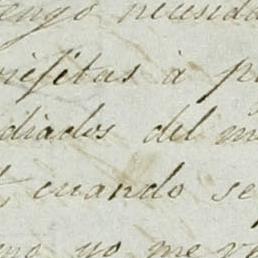 tengo necesida
visitas à p
diados del m
cuando se
no yo me v